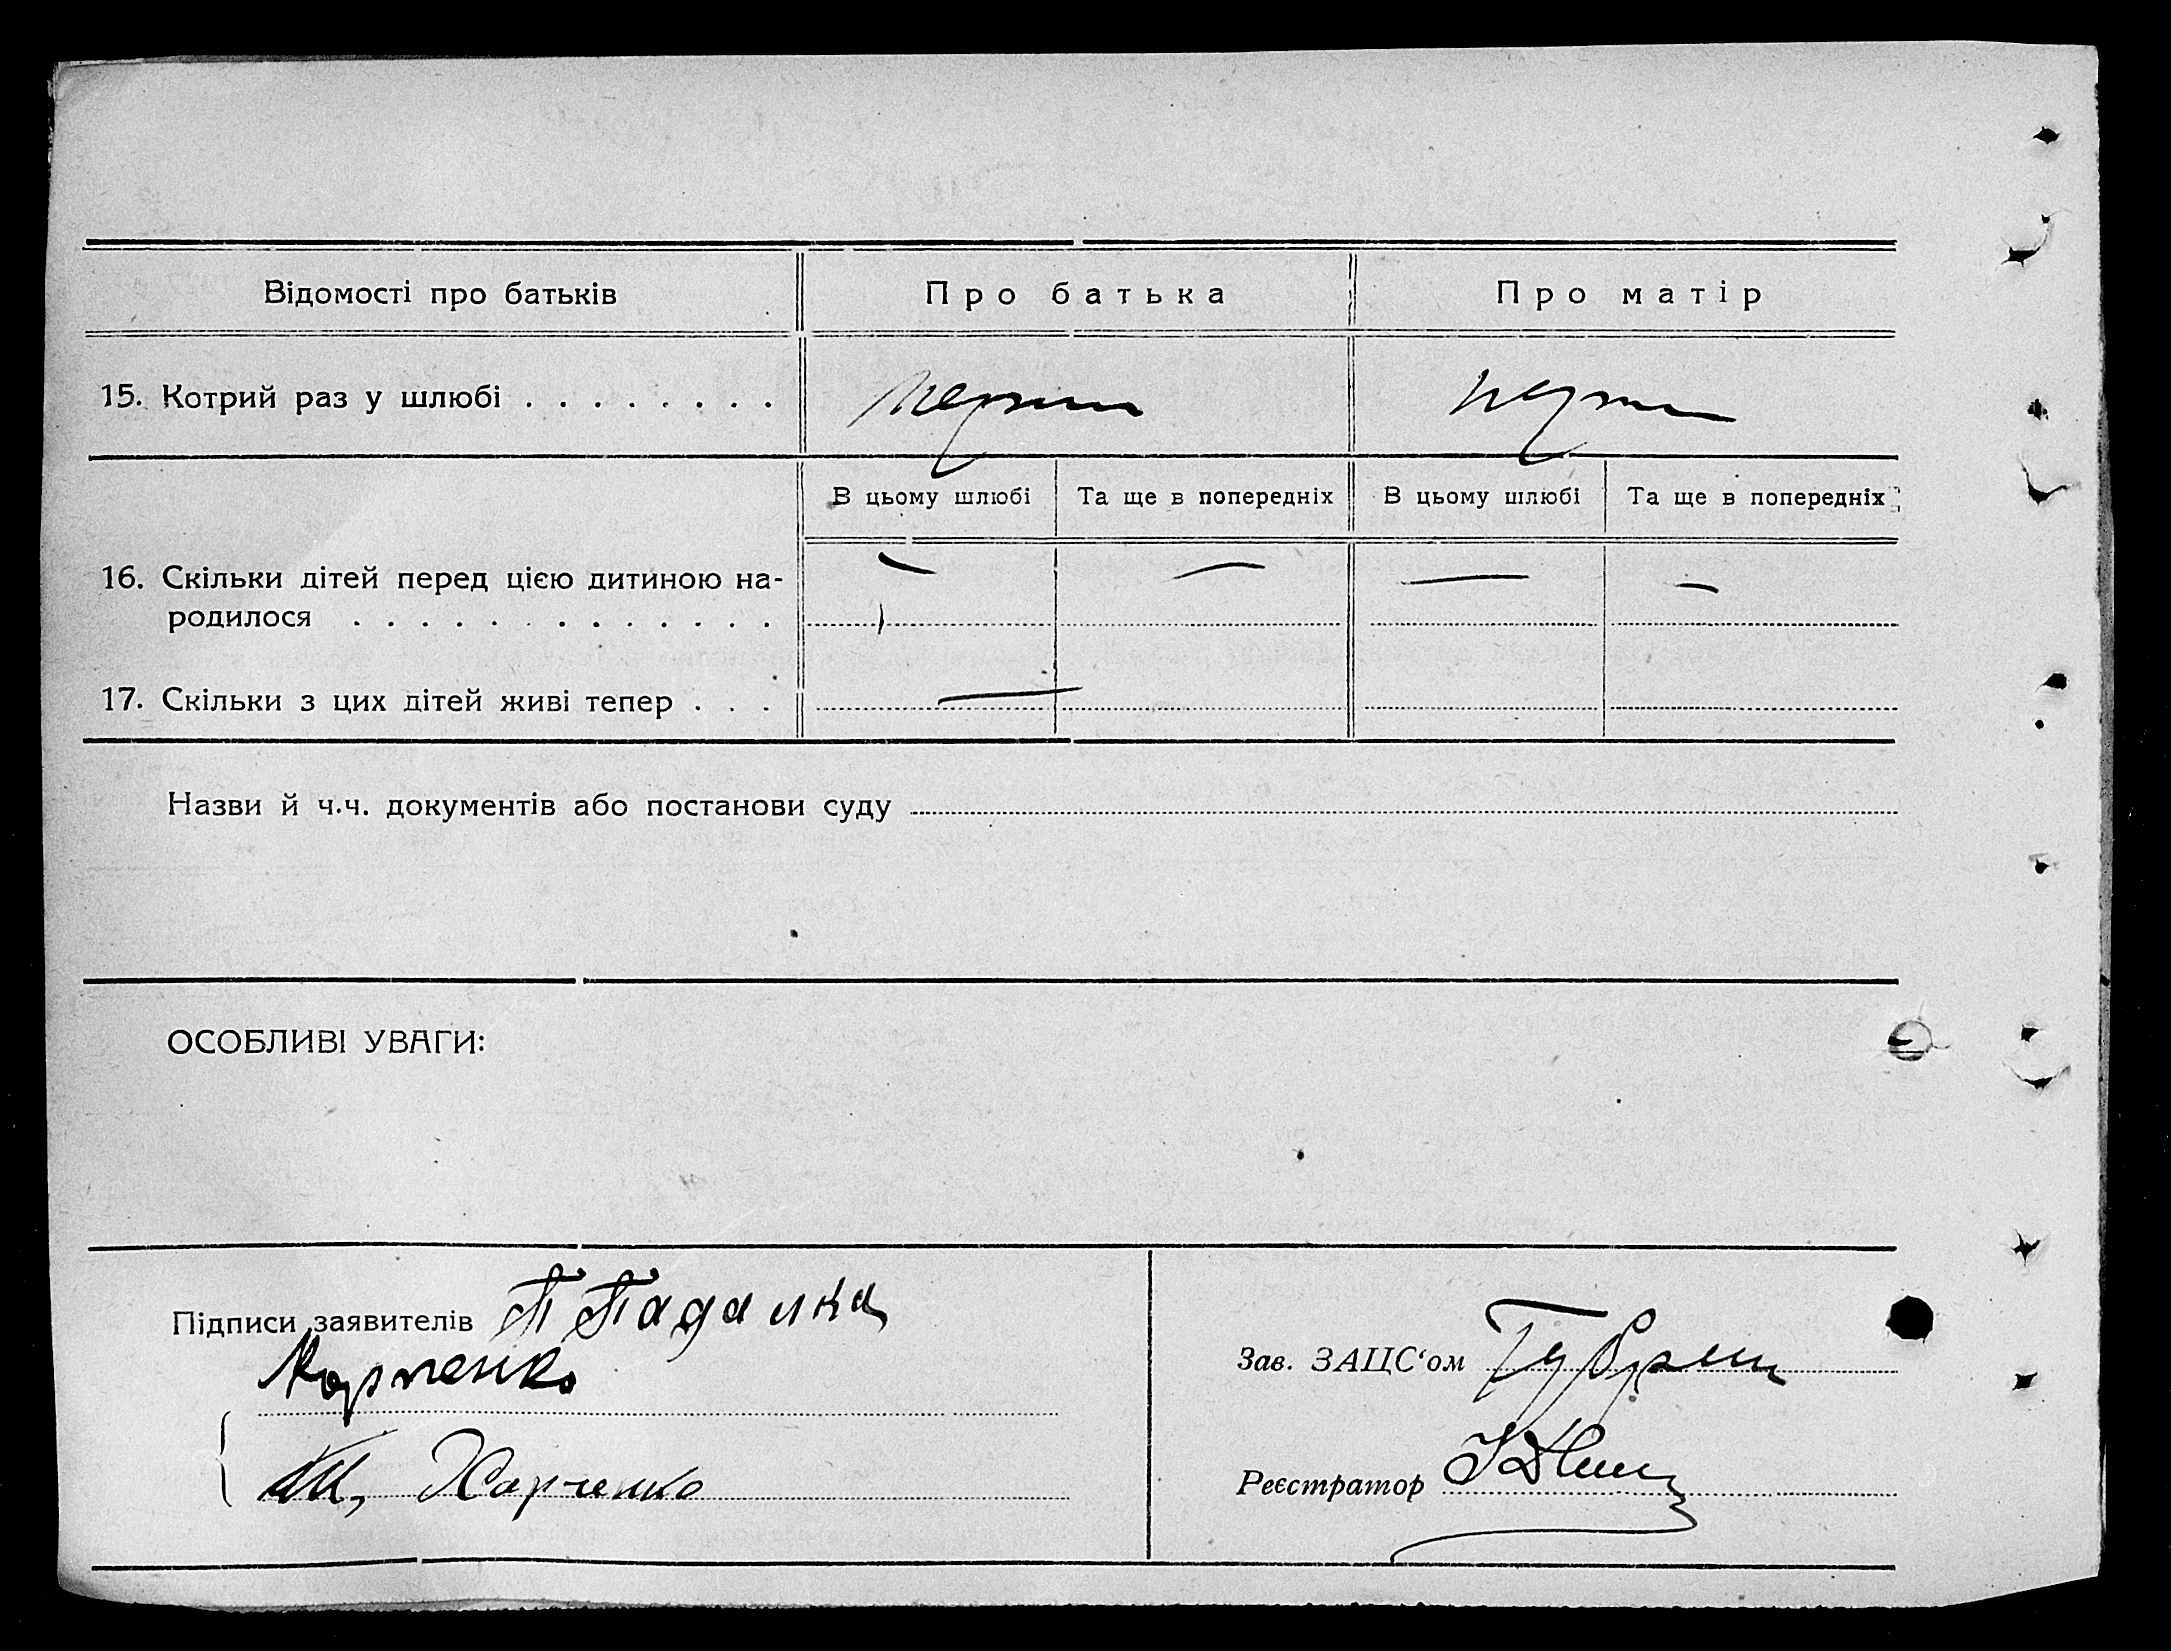 Відомості про батьків Про батька Про матір
15. Котрий раз у шлюбі . . . . . . . . перший перший
В цьому шлюбі Та ще в попередніх В цьому шлюбі Та ще в попередніх
16. Скільки дітей перед цією дитиною на- — — — —
родилося . . . . . . . . . . . . .
17. Скільки з цих дітей живі тепер . . . —
Назви й ч.ч. документів або постанови суду
ОСОБЛИВІ УВАГИ:
Підписи заявителів П Падалка
Зав. ЗАЦС‘ом
Харченко
Реєстратор